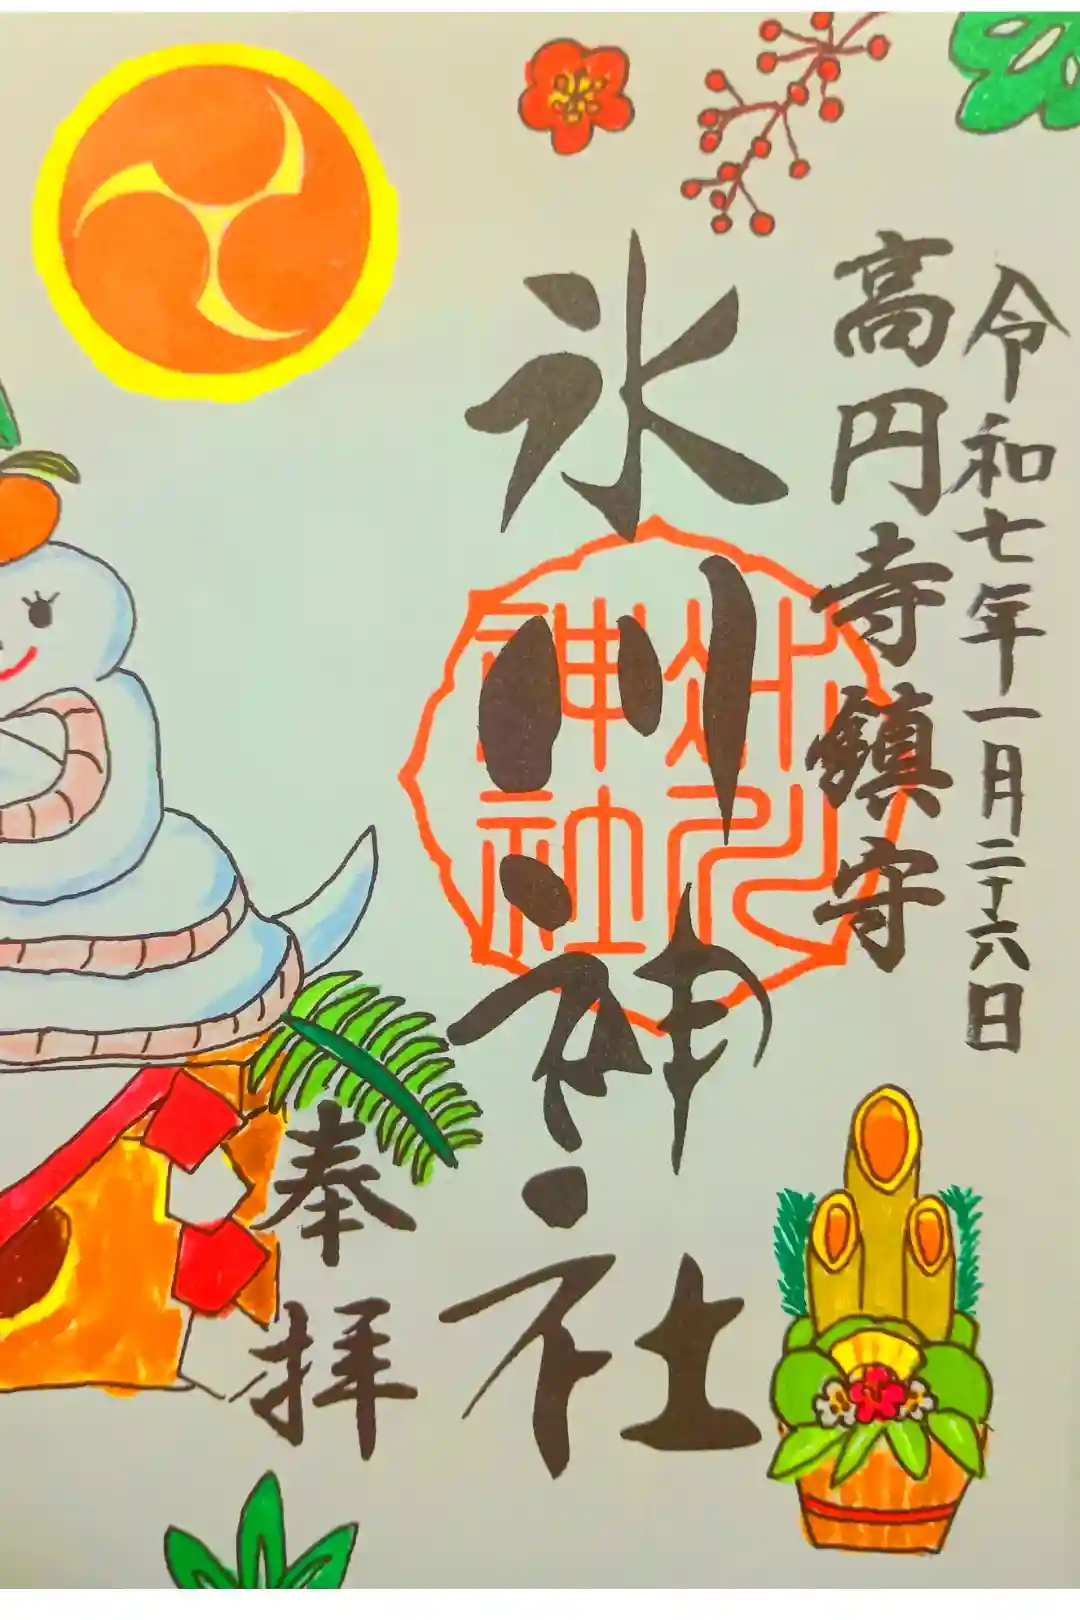 令和七年一月二十六日
高円寺鎮守
氷川神社
氷川神社
奉拝